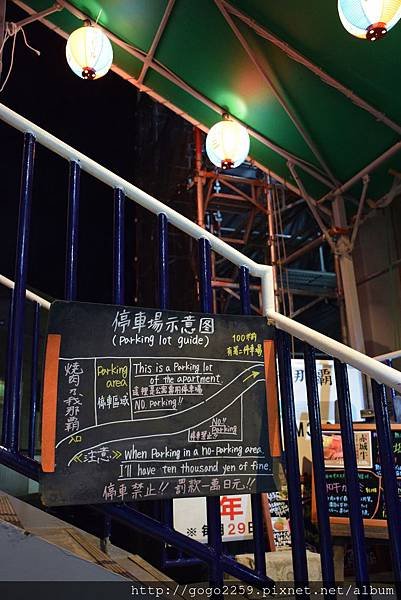 停車場示意圖
(Parking lot guide)
100米有第二停車場
Parking area
停車區域
This is a Parking lot
of the apartment
這裡是公寓專用停車場
NO Parking!!
燒肉乃我那霸
NO!! Parking
停車禁止!!
≪注意≫ When Parking in a no-parking area.
I'll have ten thousand yen of fine.
停車禁止!! 罰款一萬日元!!
那霸
年
※每月29日
赤城牛
http://gogo2259.pixnet.net/album